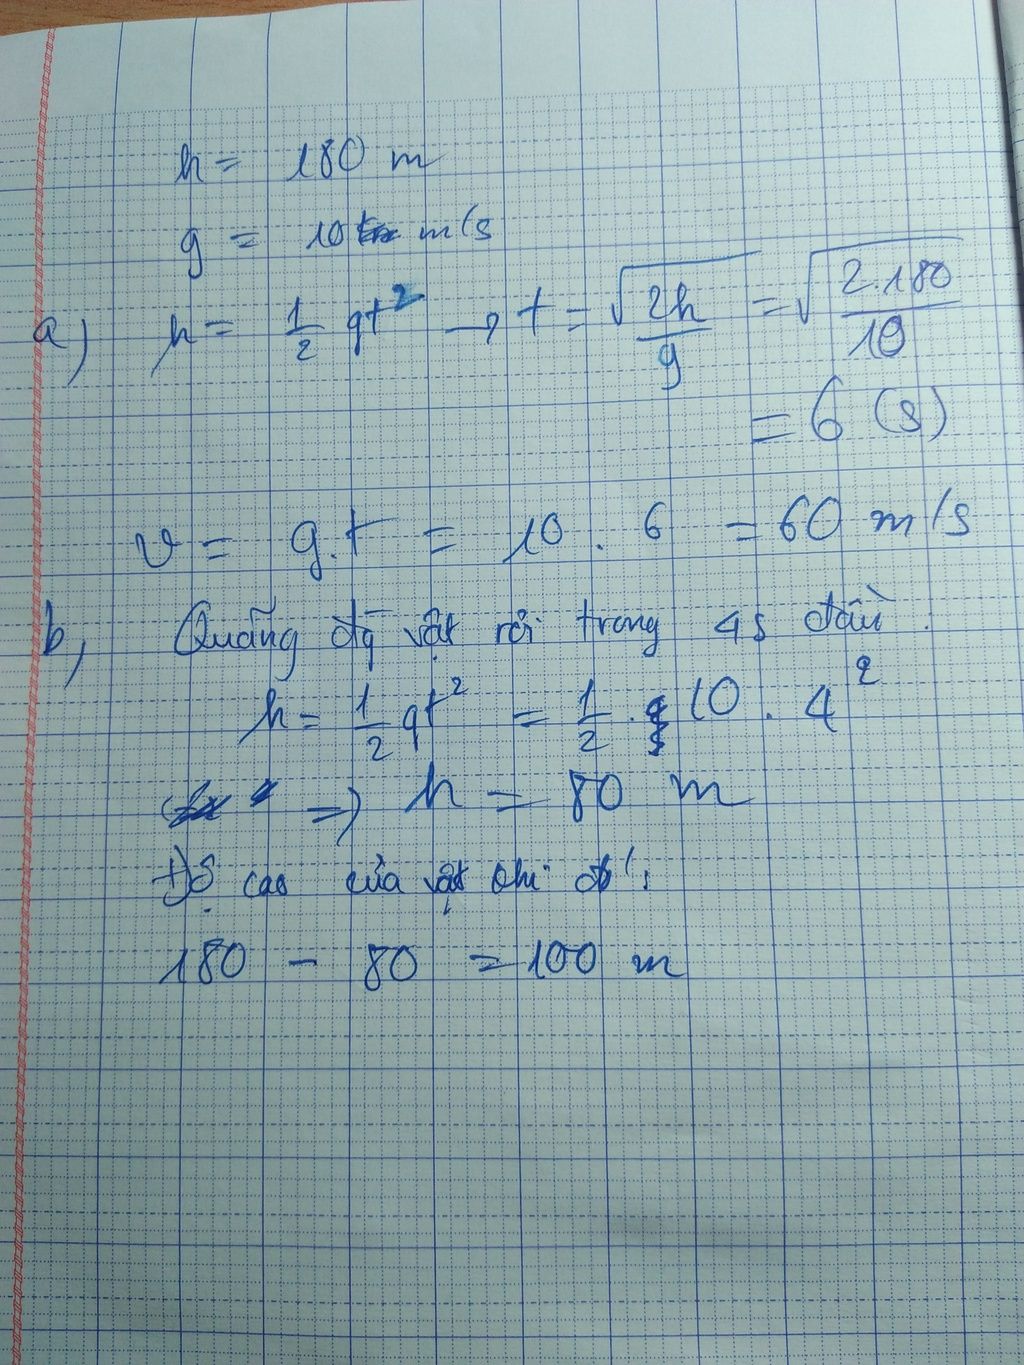 h = 180 m
g = 10 m/s
a) h = 1/2 gt² → t = √(2h/g) = √(2.180/10)
= 6 (s)
v = g.t = 10 . 6 = 60 m/s
b, Quãng đg vật rơi trong 4s đầu.
h = 1/2 gt² = 1/2 . 10 . 4²
=> h = 80 m
Độ cao của vật khi đó:
180 - 80 = 100 m